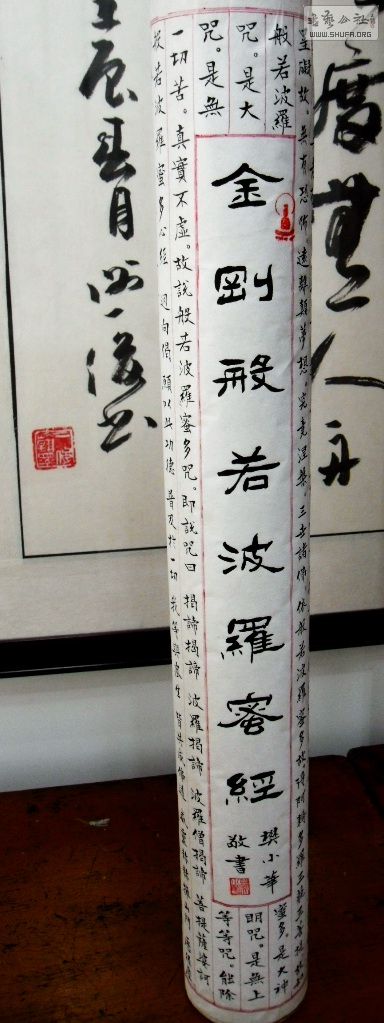 書藝公社
WWW.SHUFA.ORG
金剛般若波羅蜜經
樊小華
敬書
般若波羅
蜜多。是大神
咒。是大
明咒。是無上
咒。是無
等等咒。能除
一切苦。真實不虛。故說般若波羅蜜多咒。即說咒曰 揭諦揭諦 波羅揭諦 波羅僧揭諦 菩提薩婆訶
般若波羅蜜多心經 迴向偈 願以此功德 普及於一切 我等與眾生 皆共成佛道
罣礙故。無有恐怖。遠離顛倒夢想。究竟涅槃。三世諸佛。依般若波羅蜜多故得阿耨多羅三藐三菩提
度無人舟